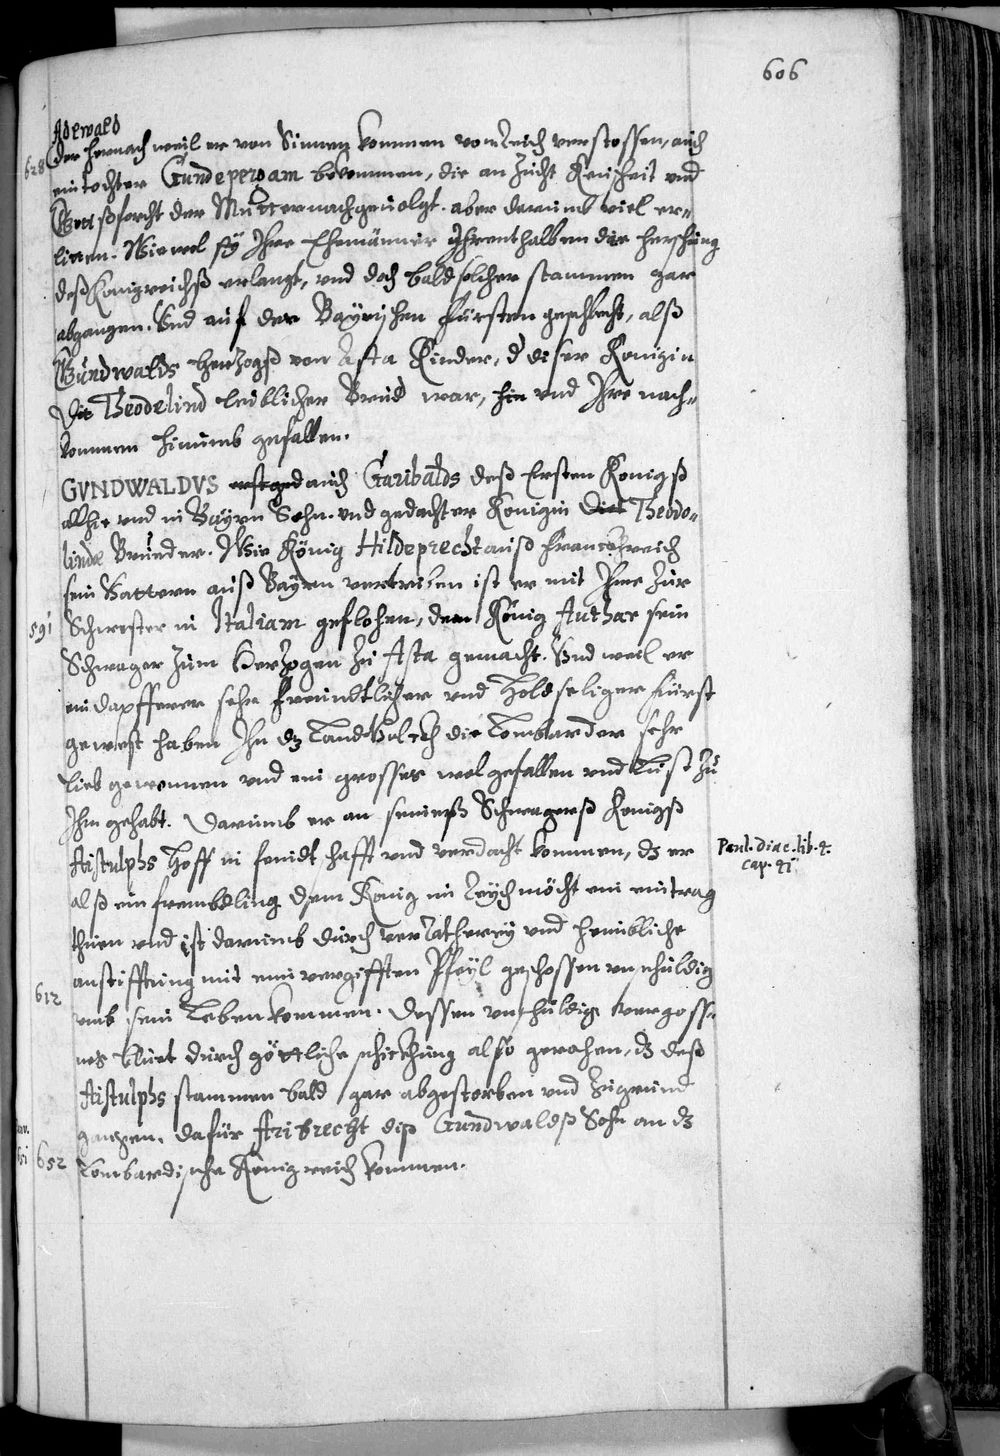 606
Adewald
628
der hernach weil er von Sinnen kommen vom Reich verstossen, auch
ein tochter Gundepergam bekommen, die an Zucht Keüscheit und
Gottsforcht der Mutter nachgeuolgt. aber darumb viel er-
litten. Wiewol sÿ Ihre Ehemänner Ihrenthalben die herschung
deß Konigreichß erlangt, und doch bald solcher stammen gar
abgangen. Und auf der Bayrischen fürsten geschlecht, alß
Gundwalds herzogß von Asta Kinder, d diser Konigin
Die Theodelind leiblicher Brud war, hin und Ihre nach-
kommen hinumb gefallen.
GVNDWALDVS auch Garibalds deß Ersten Konigß
allhie und in Bayrn Sohn. und gedachter Konigin Diet Theodo-
linde Bruder. Wie König Hildeprecht auß franckreich
sein Vattern auß Bayrn vertriben ist er mit Ihme zur
591
Schwester in Italiam geflohen, den König Authar sein
Schwager zum Herzogen zu Asta gemacht. Und weil er
ein dapfferer sehr freündtlicher und holdseliger fürst
gewest haben Ihn dz Landvolckh die Lombarder sehr
lieb gewonnen und ein grosses wolgefallen und Lust zu
Ihm gehabt. Darumb er an seineß Schwagerß Konigß
Aistulphs Hoff in feindtschafft und verdacht kommen, dz er
Paul. diac. lib. 4.
cap. 41
alß ein frembdling dem König im Reich möcht ein eintrag
thuen und ist darumb durch verrätherey und heimbliche
anstifftung mit eim vergifften Pfeyl geschossen unschuldig
612
umb sein Leben kommen. Dessen unschuldig vergoss-
nes bluet durch göttliche schickhung also gerochen, dz deß
Aistulphs stammen bald gar abgestorben und Zugrund
gangen. dafür Aribrecht diß Gundwaldß Sohn an dz
652
Lombardische Königreich kommen.